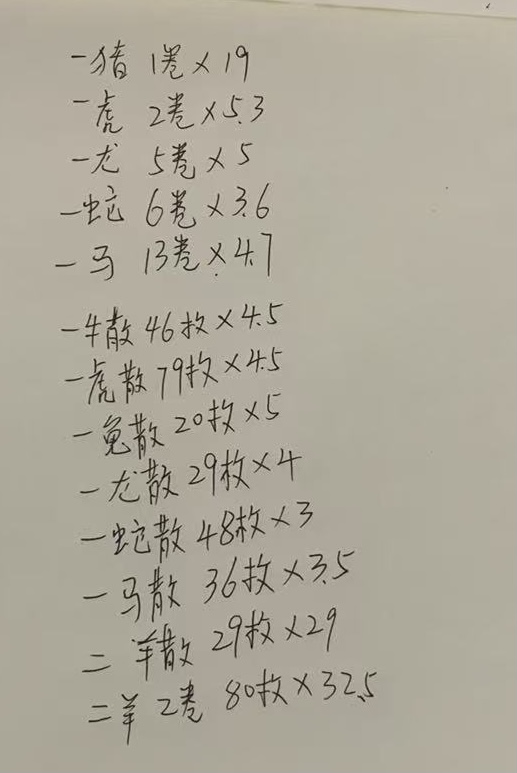 一猪 1卷×19
一虎 2卷×5.3
一龙 5卷×5
一蛇 6卷×3.6
一马 13卷×4.7
一牛散 46枚×4.5
一虎散 79枚×4.5
一兔散 20枚×5
一龙散 29枚×4
一蛇散 48枚×3
一马散 36枚×3.5
二 羊散 29枚×29
二羊 2卷 80枚×32.5